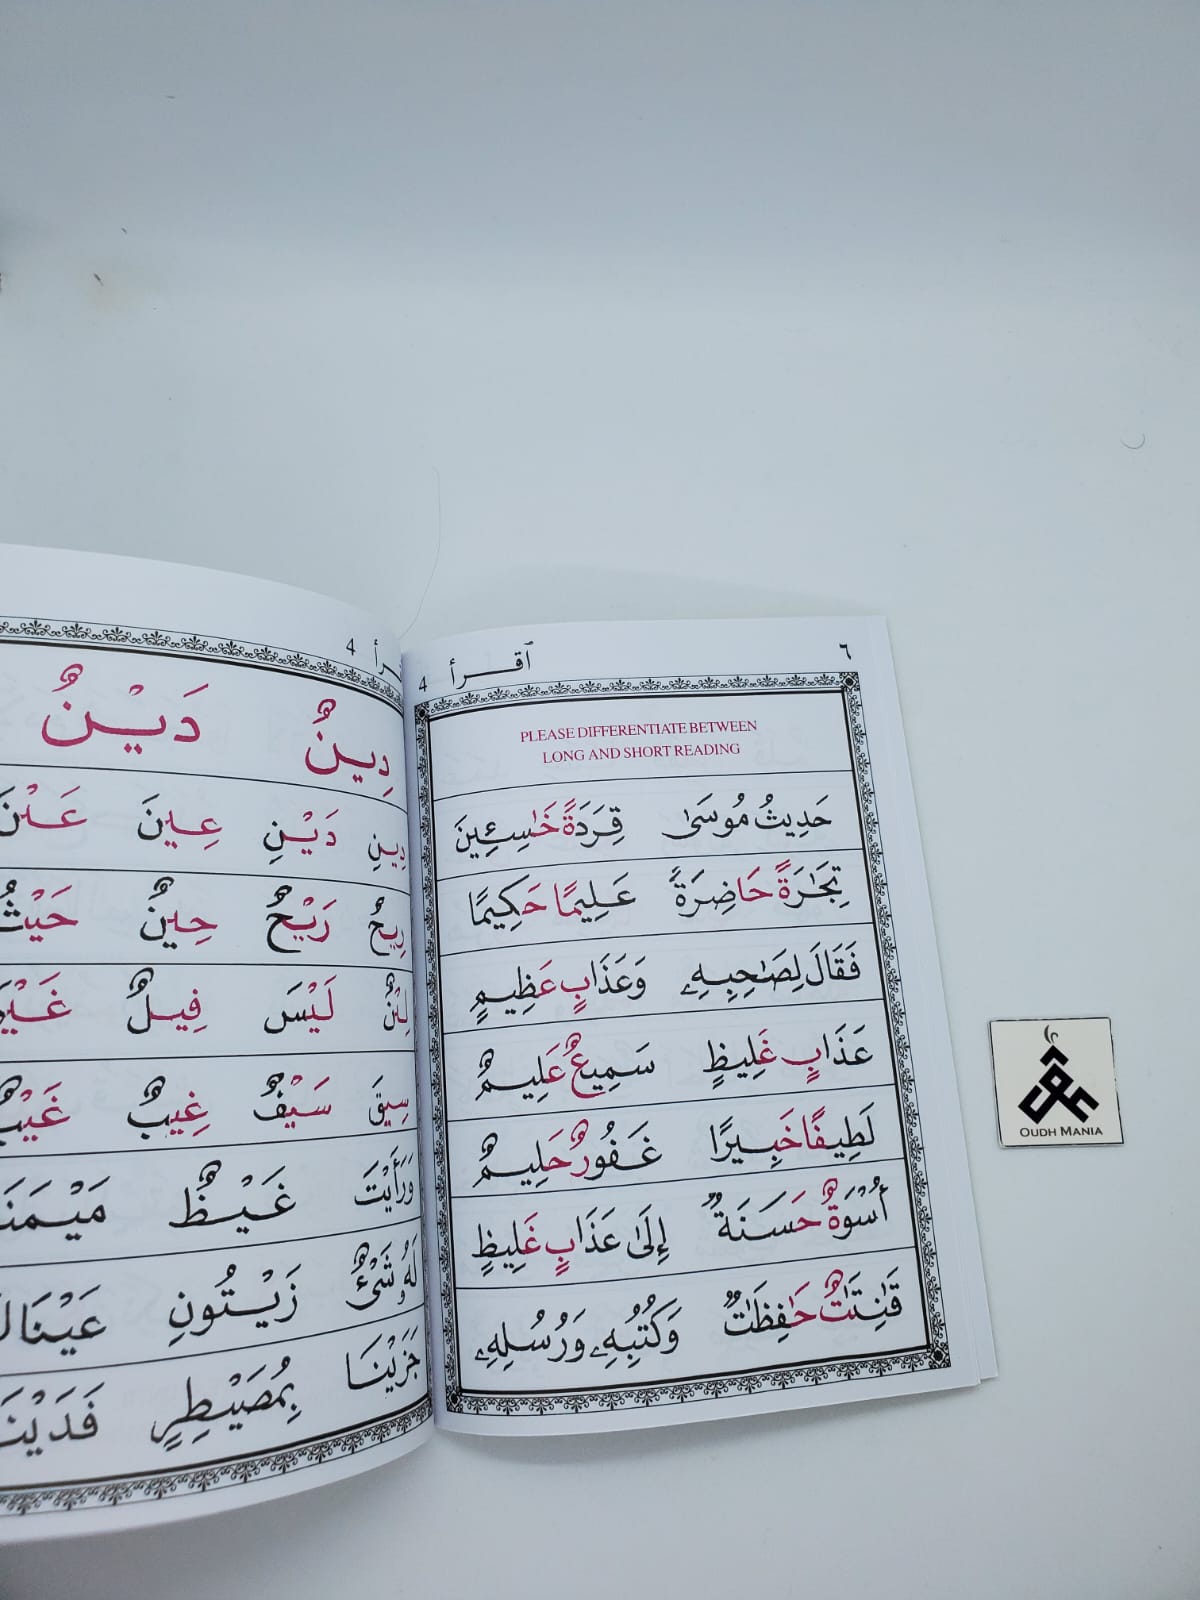 ٦ ٱقرأ 4
PLEASE DIFFERENTIATE BETWEEN
LONG AND SHORT READING
حَدِيثُ مُوسَىٰ قِرَدَةً خَٰسِـِٔينَ
تِجَٰرَةً حَاضِرَةً عَلِيمًا حَكِيمًا
فَقَالَ لِصَٰحِبِهِۦ وَعَذَابٍ عَظِيمٍ
عَذَابٍ غَلِيظٍ سَمِيعٌ عَلِيمٌ
لَطِيفًا خَبِيرًا غَفُورٌ حَلِيمٌ
أُسْوَةٌ حَسَنَةٌ إِلَىٰ عَذَابٍ غَلِيظٍ
قَٰنِتَٰتٌ حَٰفِظَٰتٌ وَكُتُبِهِۦ وَرُسُلِهِۦ
4
دِينٌ دَيْنٌ
دِينِ دَيْنِ عِينَ
رِيحٌ رَيْحٌ حِينٌ حَيْثُ
لَيْسَ فِيلٌ
سِيقَ سَيْفٌ غِيبٌ
وَرَأَيْتَ غَيْظٌ
لَهُۥ شَىْءٌ زَيْتُونِ
جَزَيْنَا بِمُصَيْطِرٍ
OUDH MANIA